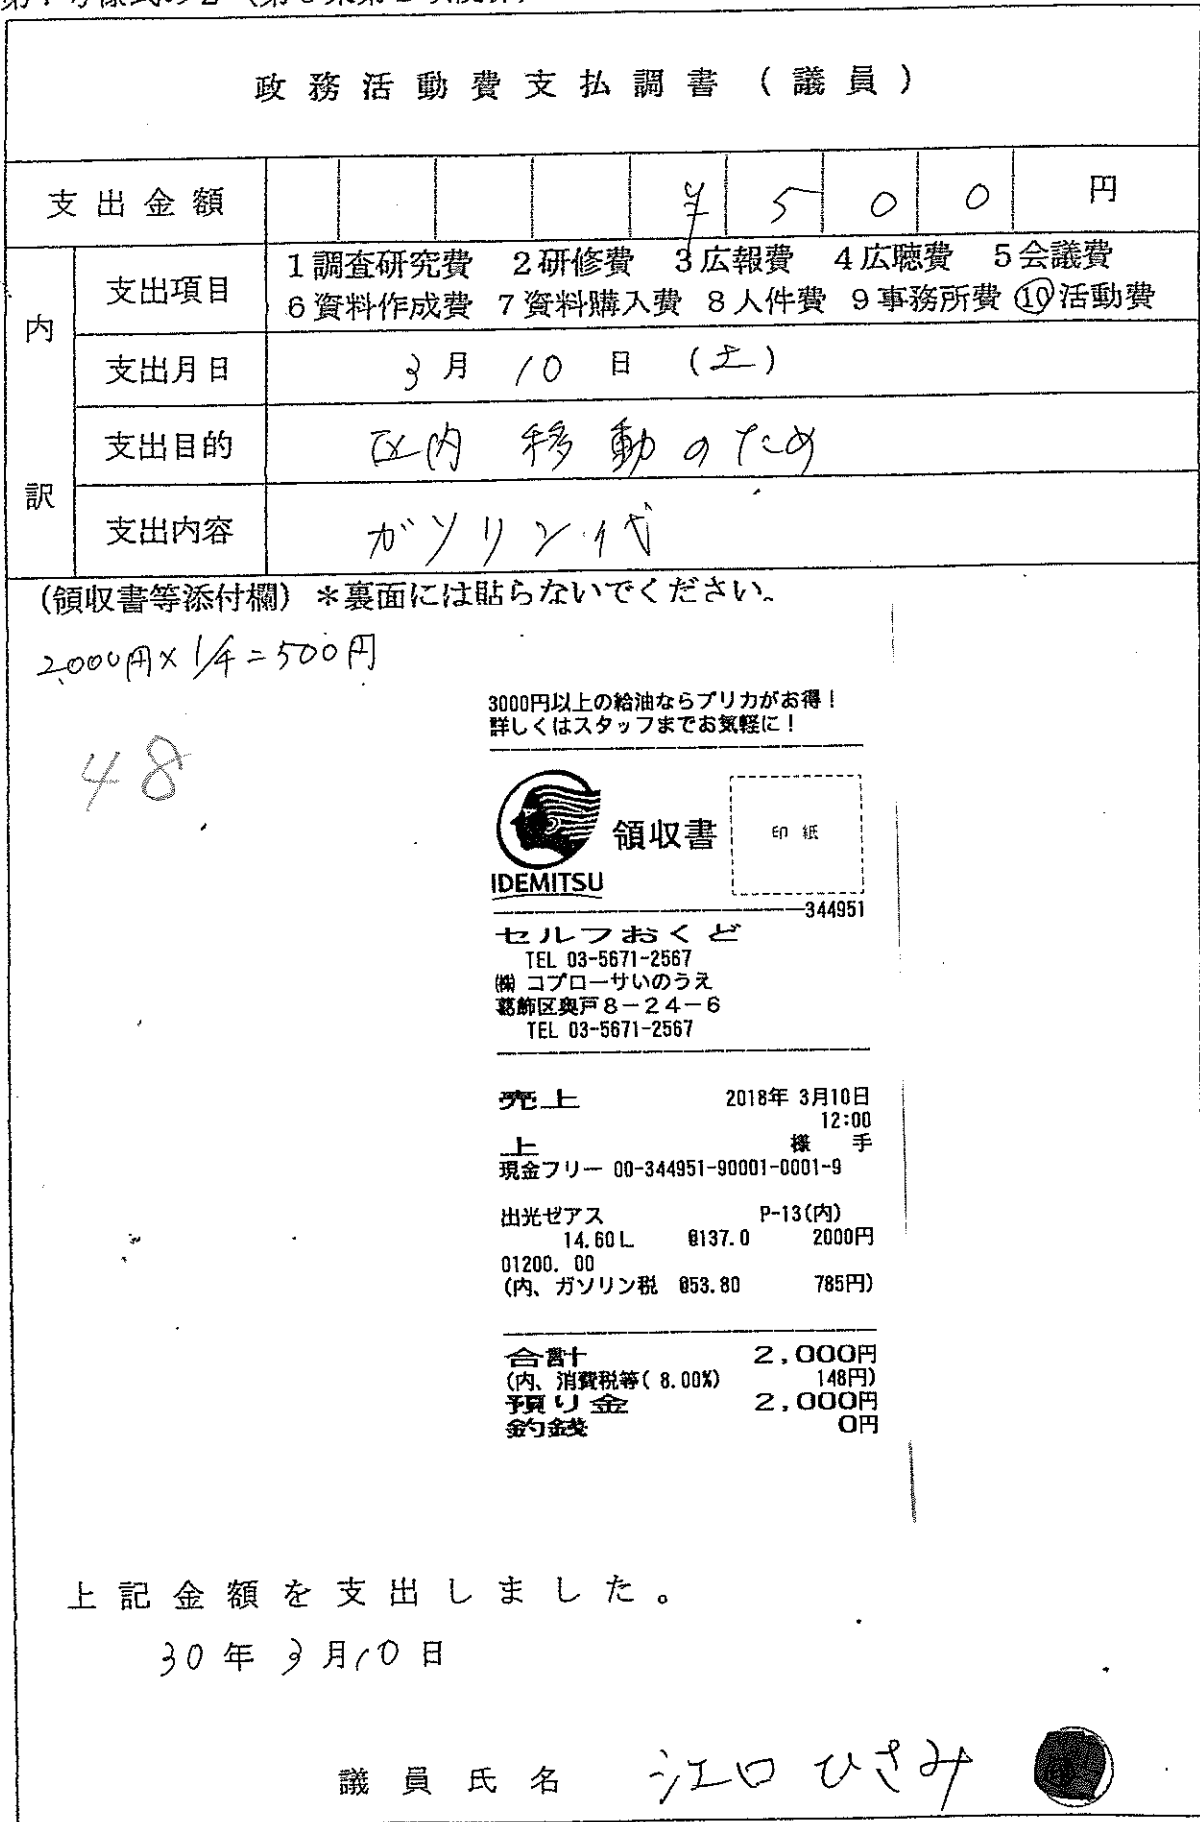 政務活動費支払調書(議員)
支出金額 ¥ 5 0 0 円
内訳
支出項目 1調査研究費 2研修費 3広報費 4広聴費 5会議費
6資料作成費 7資料購入費 8人件費 9事務所費 ⑩活動費
支出月日 3月10日(土)
支出目的 区内移動のため
支出内容 ガソリン代
(領収書等添付欄)*裏面には貼らないでください。
2000円×1/4=500円
48
3000円以上の給油ならプリカがお得!
詳しくはスタッフまでお気軽に!
領収書 印紙
IDEMITSU
344951
セルフおくど
TEL 03-5671-2567
㈱コプローサいのうえ
葛飾区奥戸8-24-6
TEL 03-5671-2567
売上 2018年 3月10日
12:00
上 様 手
現金フリー 00-344951-90001-0001-9
出光ゼアス P-13(内)
14.60L @137.0 2000円
01200.00
(内、ガソリン税 @53.80 785円)
合計 2,000円
(内、消費税等( 8.00%) 148円)
預り金 2,000円
釣銭 0円
上記金額を支出しました。
30年3月10日
議員氏名 江口ひさみ